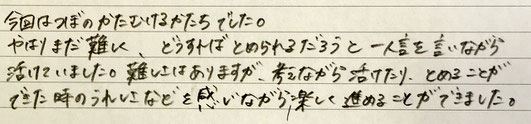 今回はつぼのかたむけるかたちでした。
やはりまだ難しく、どうすればとめられるだろうと一人言を言いながら
活けていました。難しさはありますが、考えながら活けたり、とめることが
できた時のうれしさなどを感じながら、楽しく進めることができました。